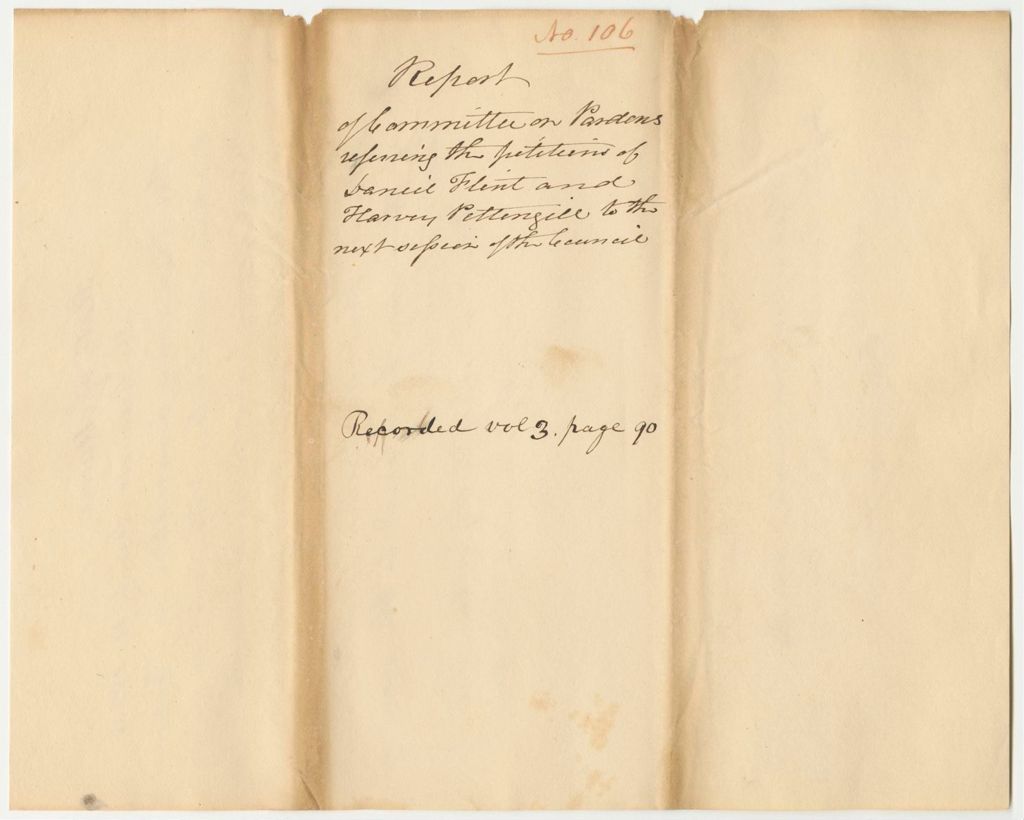 No. 106
Report
of Committee on Pardons
referring the petitions of
Daniel Flint and
Harvey Pettengill to the
next session of the Council
Recorded vol 3. page 90